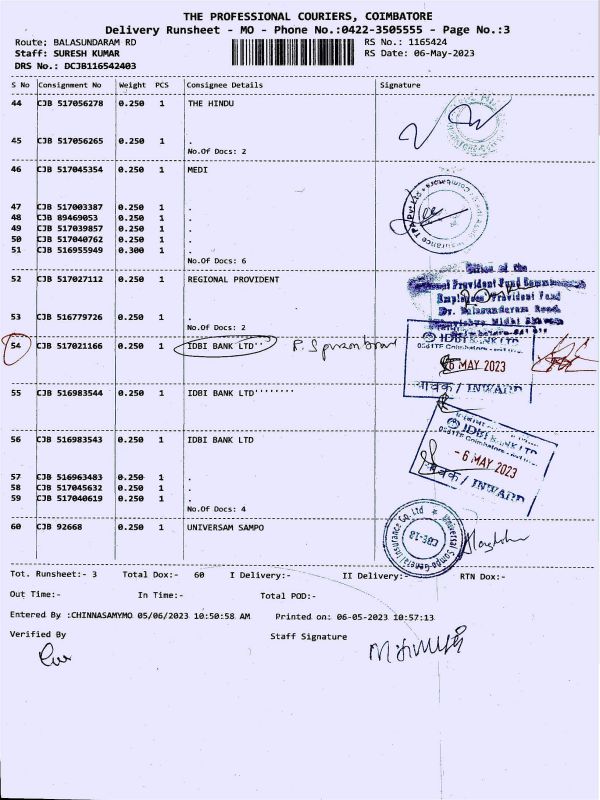 THE PROFESSIONAL COURIERS, COIMBATORE
Delivery Runsheet - MO - Phone No.:0422-3505555 - Page No.:3
Route: BALASUNDARAM RD RS No.: 1165424
Staff: SURESH KUMAR RS Date: 06-May-2023
DRS No.: DCJB116542403
S No Consignment No Weight PCS Consignee Details Signature
44 CJB 517056278 0.250 1 THE HINDU
45 CJB 517056265 0.250 1 .
No.Of Docs: 2
46 CJB 517045354 0.250 1 MEDI
47 CJB 517003387 0.250 1 .
48 CJB 89469053 0.250 1 .
49 CJB 517039857 0.250 1 .
50 CJB 517040762 0.250 1 .
51 CJB 516955949 0.300 1 .
No.Of Docs: 6
52 CJB 517027112 0.250 1 REGIONAL PROVIDENT
Office of the
Provident Fund
Employees Provident Fund
Dr. Balasundaram Road,
53 CJB 516779726 0.250 1 .
No.Of Docs: 2
54 CJB 517021166 0.250 1 IDBI BANK LTD''
IDBI BANK LTD
6 MAY 2023
आवक / INWARD
55 CJB 516983544 0.250 1 IDBI BANK LTD''''''''
56 CJB 516983543 0.250 1 IDBI BANK LTD
IDBI BANK LTD
- 6 MAY 2023
आवक / INWARD
57 CJB 516963483 0.250 1 .
58 CJB 517045632 0.250 1 .
59 CJB 517040619 0.250 1 .
No.Of Docs: 4
60 CJB 92668 0.250 1 UNIVERSAM SAMPO
Universal Sompo General Insurance Co. Ltd
Tot. Runsheet:- 3 Total Dox:- 60 I Delivery:- II Delivery:- RTN Dox:-
Out Time:- In Time:- Total POD:-
Entered By :CHINNASAMYMO 05/06/2023 10:50:58 AM Printed on: 06-05-2023 10:57:13
Verified By Staff Signature